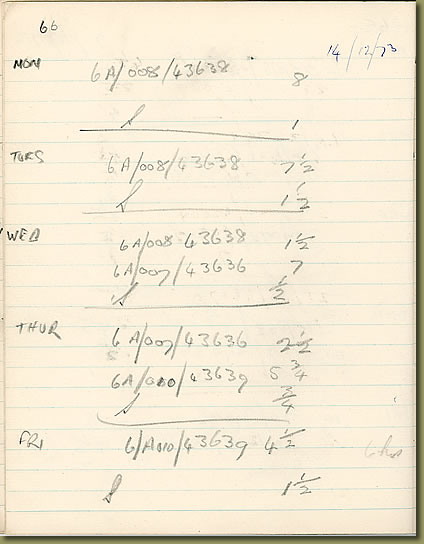 66
14/12/73
MON 6A/008/43638 8
S 1
TUES 6A/008/43638 7 1/2
S 1 1/2
WED 6A/008 43638 1 1/2
6A/007/43636 7
S 1/2
THUR 6A/007/43636 2 1/2
6A/010/43639 5 3/4
S 3/4
FRI 6/A010/43639 4 1/2
S 1 1/2